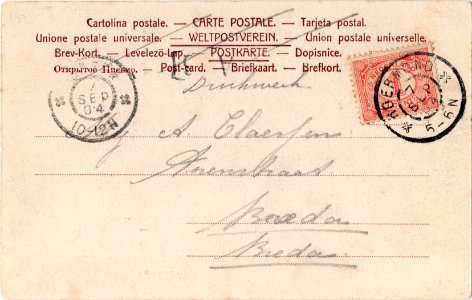 Cartolina postale. — CARTE POSTALE. — Tarjeta postal.
Unione postale universale. — WELTPOSTVEREIN. — Union postale universelle.
Brev-Kort. — Levelező-Lap. — POSTKARTE. — Dopisnice.
Открытое Письмо. — Post-card. — Briefkaart. — Brefkort.
7
SEP
04
10-12N
ROERMOND
7
SEP
5-6N
Drukwerk
A. Claessens
Breda
Breda